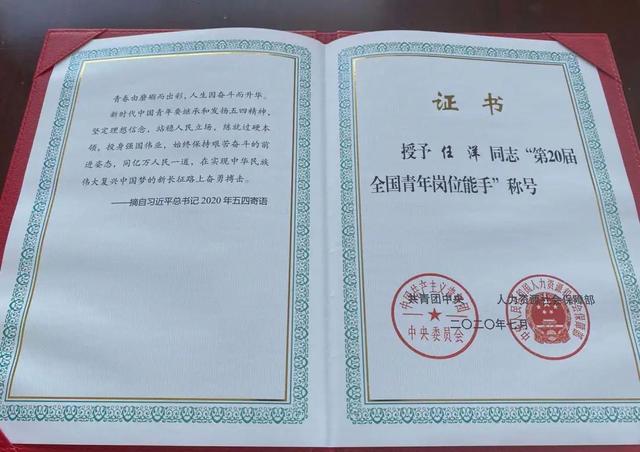 青春由磨砺而出彩，人生因奋斗而升华。
新时代中国青年要继承和发扬五四精神，
坚定理想信念，站稳人民立场，练就过硬本
领，投身强国伟业，始终保持艰苦奋斗的前
进姿态，同亿万人民一道，在实现中华民族
伟大复兴中国梦的新长征路上奋勇搏击。
——摘自习近平总书记2020年五四寄语
证书
授予任洋同志“第20届
全国青年岗位能手”称号
共青团中央 人力资源社会保障部
二〇二〇年七月
中国共产主义青年团
中央委员会
中华人民共和国人力资源和社会保障部